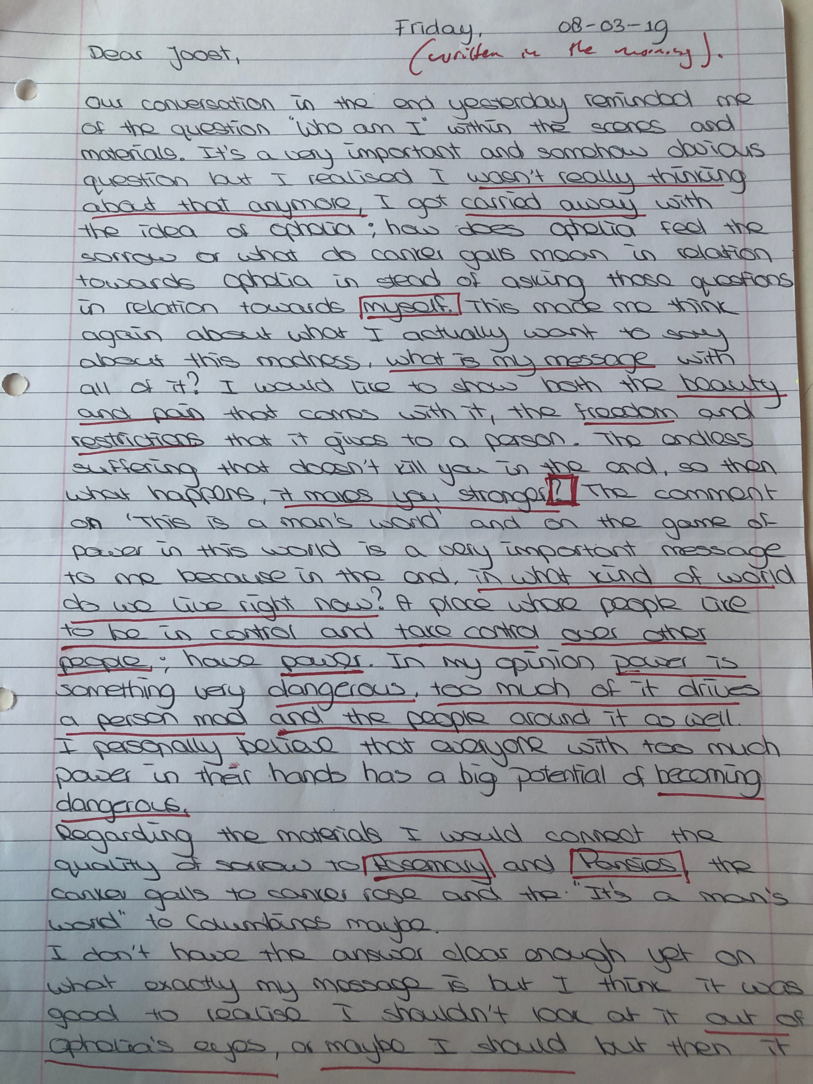 Friday, 08-03-19
Dear Joost,
(written in the morning).
Our conversation in the end yesterday reminded me
of the question "Who am I" within the scenes and
materials. It's a very important and somehow obvious
question but I realised I wasn't really thinking
about that anymore, I got carried away with
the idea of Ophelia; how does Ophelia feel the
sorrow or what do canker galls mean in relation
towards Ophelia in stead of asking those questions
in relation towards myself. This made me think
again about what I actually want to say
about this madness, what is my message with
all of it? I would like to show both the beauty
and pain that comes with it, the freedom and
restrictions that it gives to a person. The endless
suffering that doesn't kill you in the end, so then
what happens, it makes you stronger? The comment
on 'This is a man's world' and on the game of
power in this world is a very important message
to me because in the end, in what kind of world
do we live right now? A place where people like
to be in control and take control over other
people; have power. In my opinion power is
something very dangerous, too much of it drives
a person mad and the people around it as well.
I personally believe that everyone with too much
power in their hands has a big potential of becoming
dangerous.
Regarding the materials I would connect the
quality of sorrow to Rosemary and Pansies, the
canker galls to canker rose and the "It's a man's
world" to Columbines maybe.
I don't have the answer clear enough yet on
what exactly my message is but I think it was
good to realise I shouldn't look at it out of
Ophelia's eyes, or maybe I should but then it